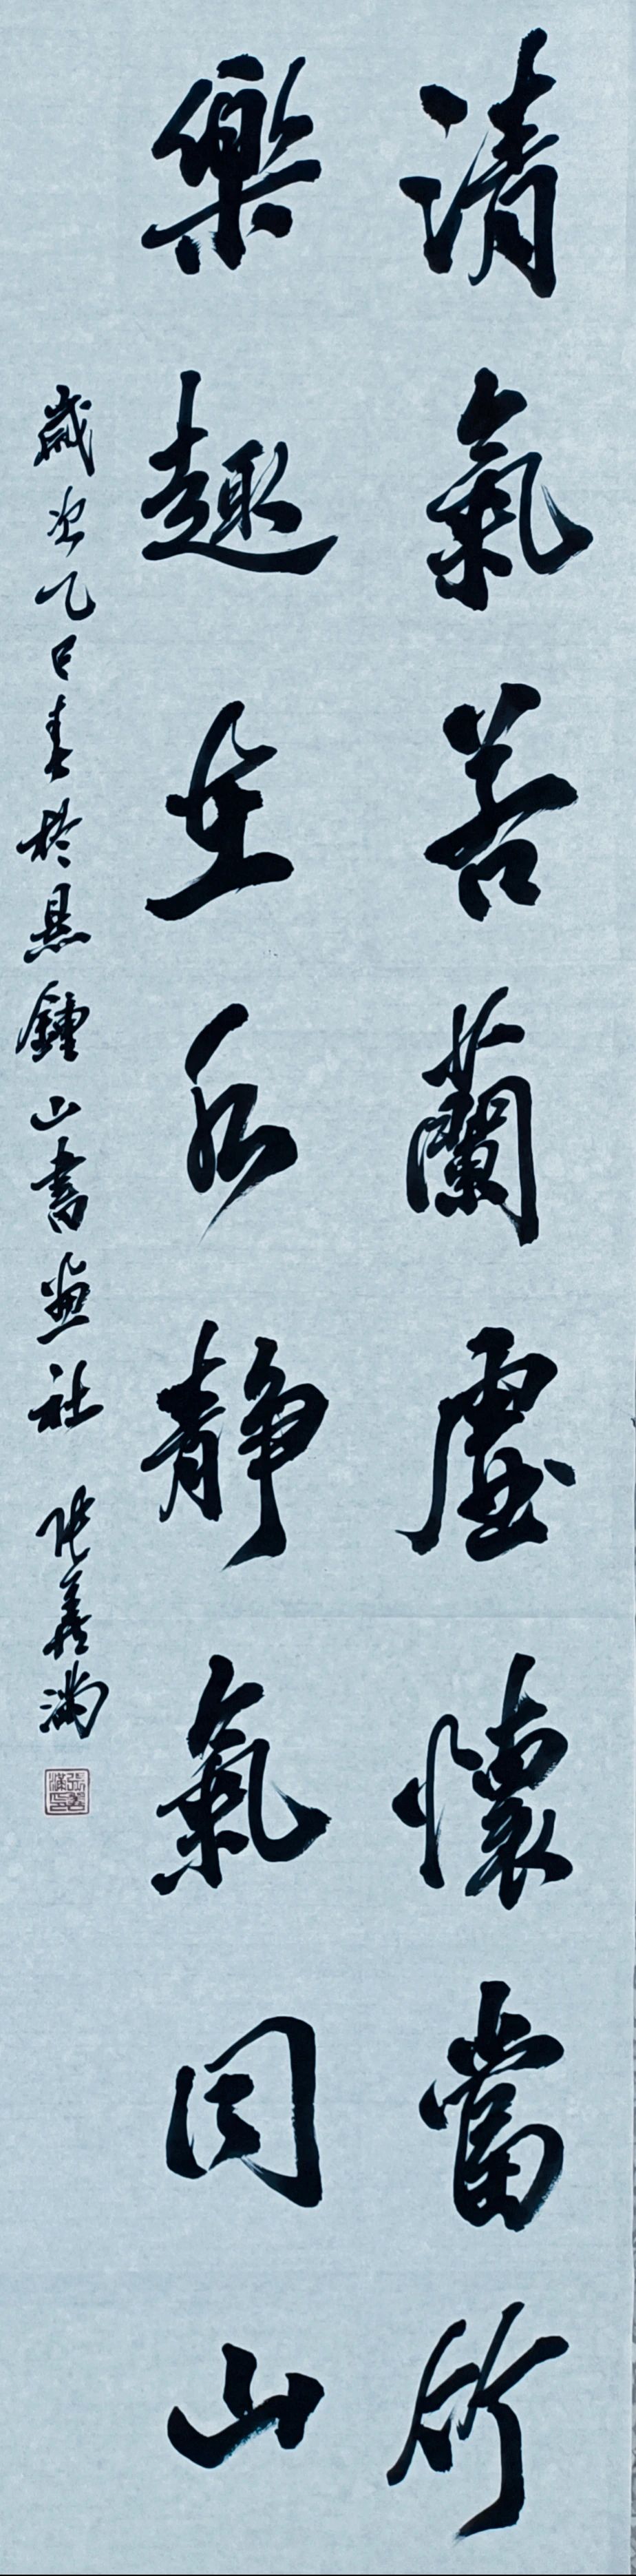 清氣若蘭虛懷當竹
樂趣在水靜氣同山
歲次乙巳春於悬鍾山書畫社 張滿